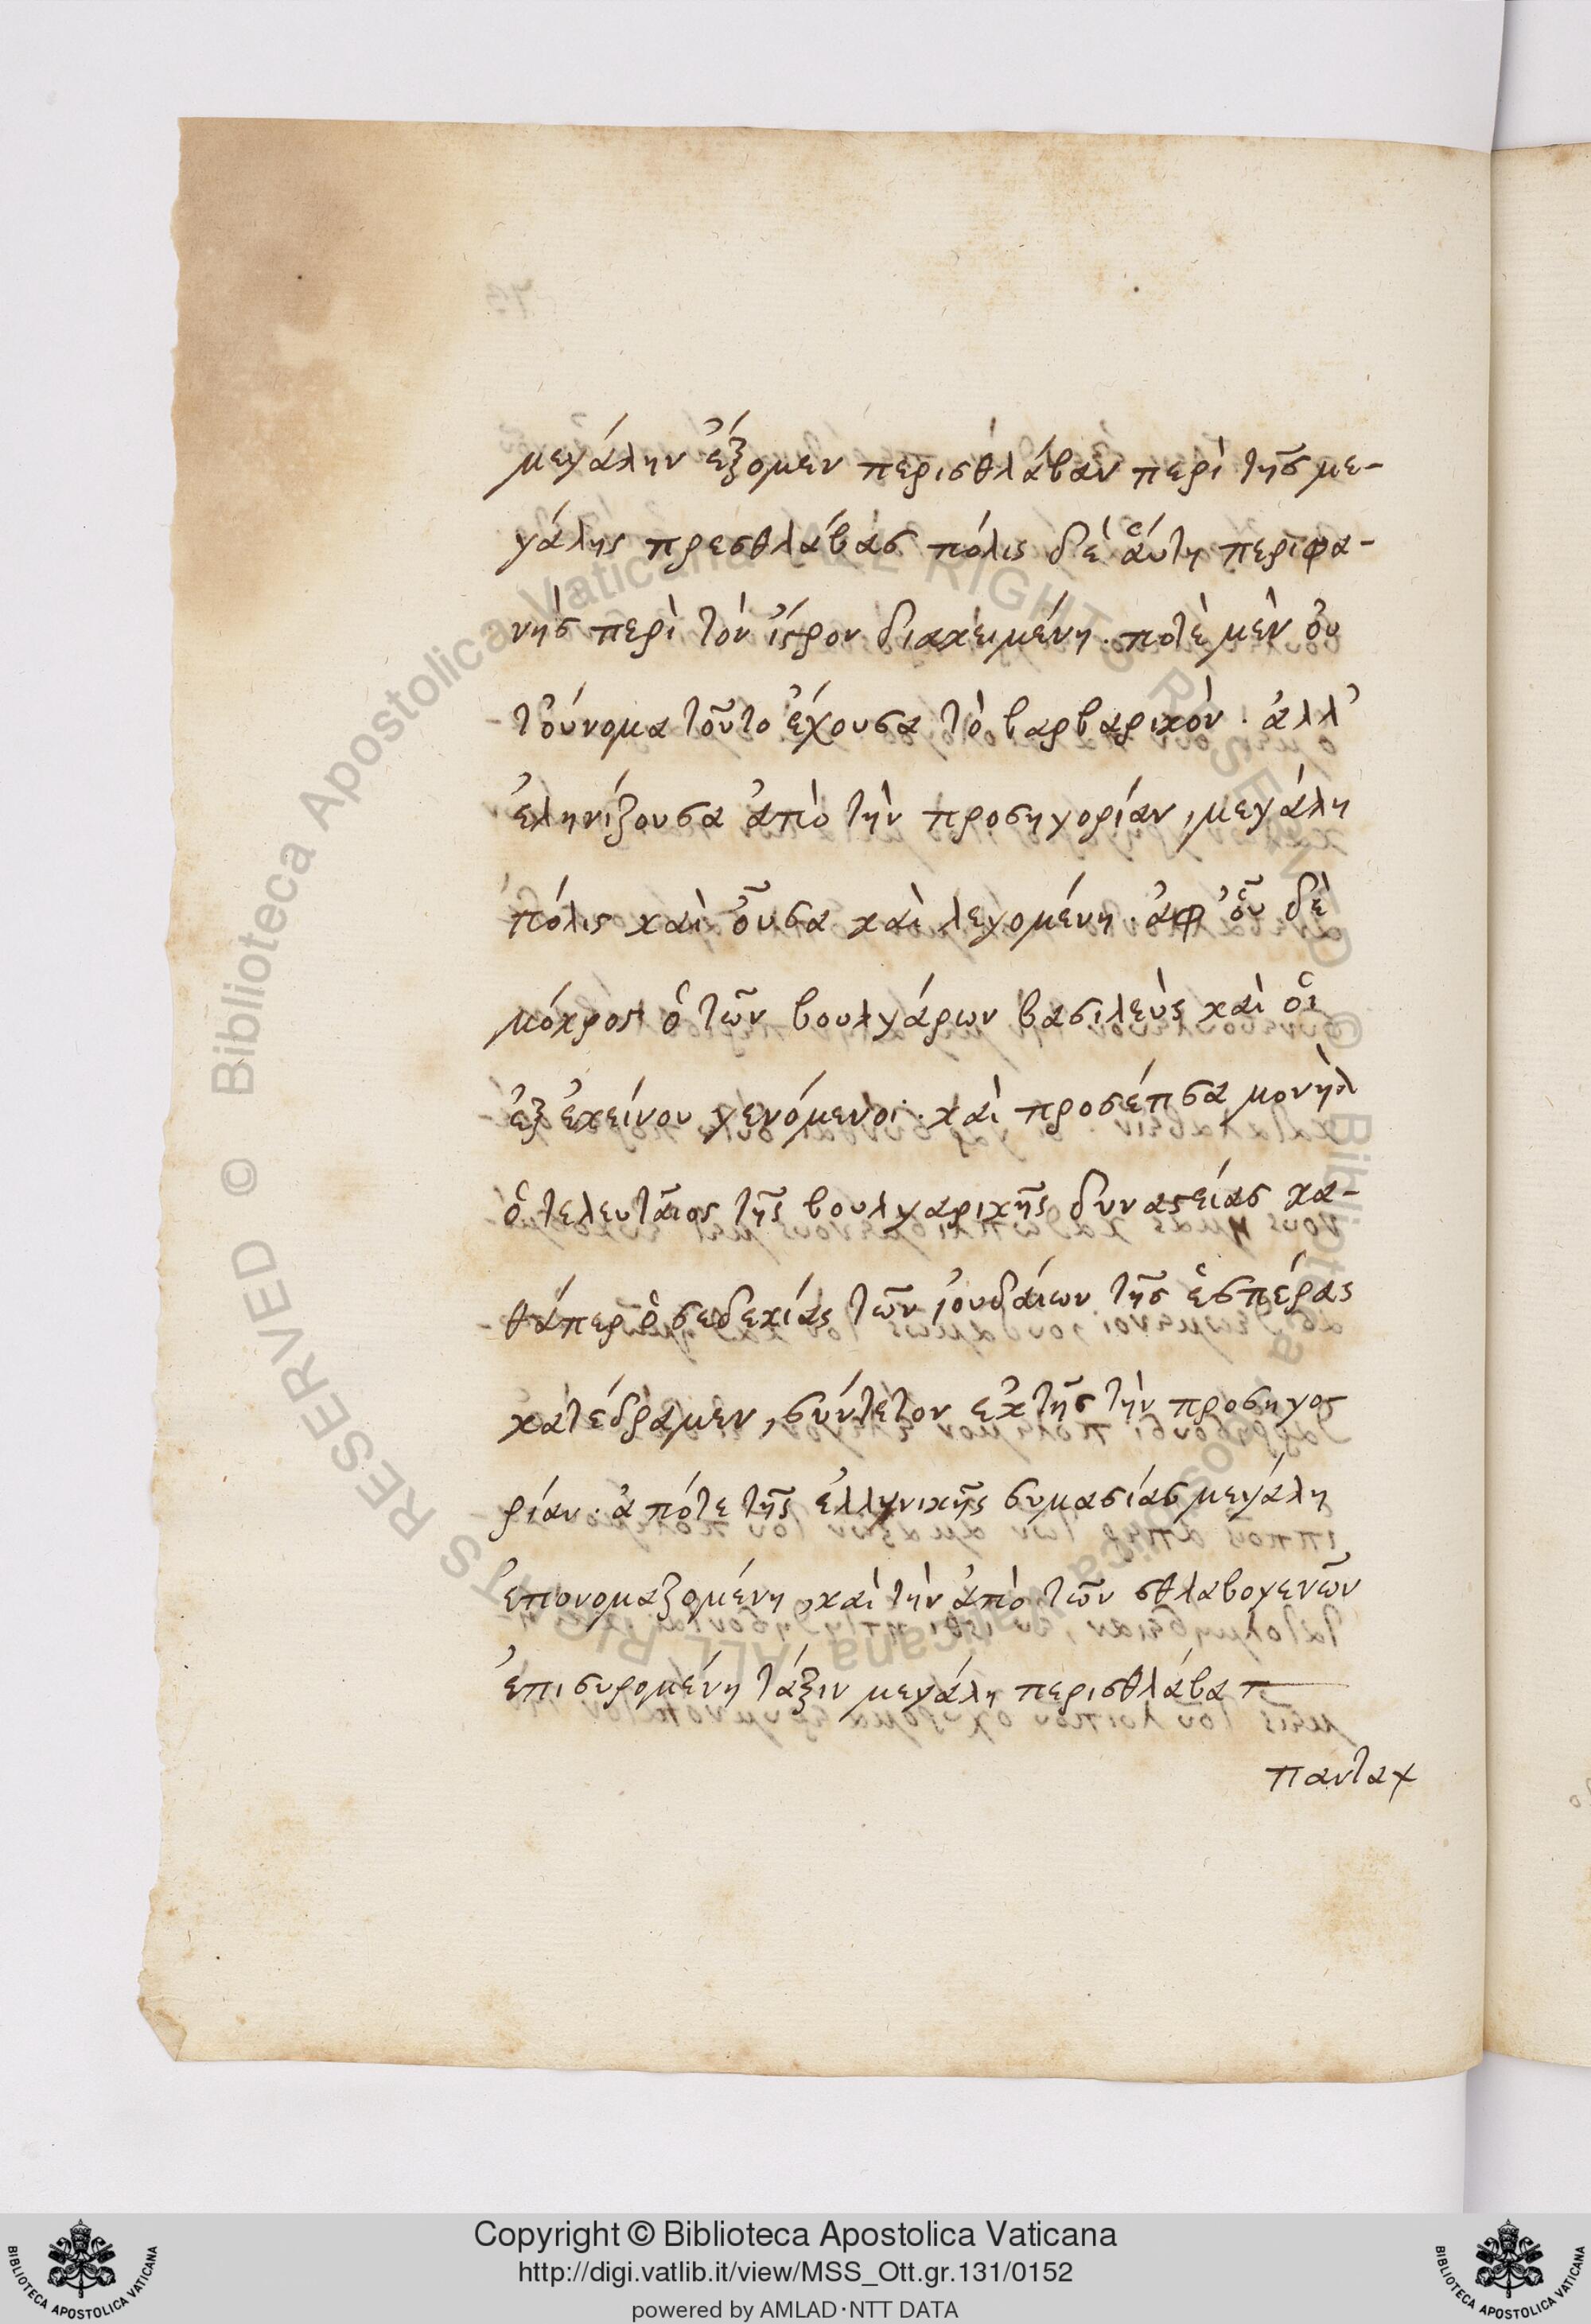 μεγάλην ἕξομεν περισθλάβαν περὶ τῆσ με-
γάλης πρεσθλάβασ πόλις δὲ ἅυτη περιφα-
νὴσ περὶ τὸν ἴςρον διακειμένη. ποτὲ μὲν ὀυ
τ' οὔνομα τοῦτο ἔχουσα τὸ βαρβαρικὸν. ἀλλ'
ἐληνίζουσα ἀπὸ τὴν προσηγορίαν, μεγάλη
πόλις καὶ ὀῦσα καὶ λεγομένη. ἀφ' ὁῦ δὲ
μόκρος ὁ τῶν βουλγάρων βασιλεὺς καὶ ὁι
ἐξ ἐκείνου γενόμενοι. καὶ προσέπσα μονὴλ
ὁ τελευτᾶιος τῆς βουλγαρικῆς δυναςείασ κα-
θάπερ ὁ σεδεκίας τῶν ἰουδάιων τῆσ ἑσπέρας
κατέδραμεν, σύντετον ἐκ τῆσ τὴν προσηγο-
ρίαν. ἀπότε τῆς ἑλληνικῆς συμασίασ μεγάλη
ἐπονομαζομένη, καὶ τὴν ἀπὸ τῶν σθλαβογενῶν
ἐπισυρομένη τάξιν μεγάλη περισθλάβα π
πανταχ
Copyright © Biblioteca Apostolica Vaticana
http://digi.vatlib.it/view/MSS_Ott.gr.131/0152
powered by AMLAD·NTT DATA
BIBLIOTECA APOSTOLICA VATICANA
BIBLIOTECA APOSTOLICA VATICANA